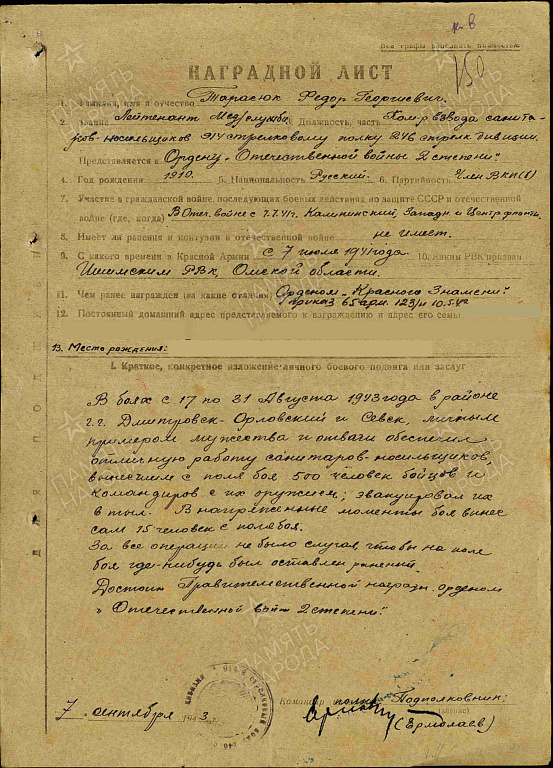 к-в
Все графы заполнять полностью
150
НАГРАДНОЙ ЛИСТ
1. Фамилия, имя и отчество Тарасюк Федор Георгиевич.
2. Звание Лейтенант Медслужбы 3. Должность, часть Ком-р взвода санита-
ров-носильщиков 914 стрелковому полку 246 стрелк. дивизии.
Представляется к Ордену „Отечественной войны 2 степени"
4. Год рождения 1910. 5. Национальность Русский. 6. Партийность Член ВКП(б)
7. Участие в гражданской войне, последующих боевых действиях по защите СССР и отечественной
войне (где, когда) В Отеч. войне с 7.7.41г. Калининский, Западн и Центр. фронты.
8. Имеет ли ранения и контузии в отечественной войне не имеет.
9. С какого времени в Красной Армии с 7 июля 1941 года 10. Каким РВК призван
Ишимским РВК, Омской области.
11. Чем ранее награжден (за какие отличия) Орденом „Красного Знамени"
приказ 65 арм. 123/н 10.5.43
12. Постоянный домашний адрес представляемого к награждению и адрес его семьи
13. Место рождения:
I. Краткое, конкретное изложение личного боевого подвига или заслуг
В боях с 17 по 31 Августа 1943 года в районе
г.г. Дмитровск-Орловский и Севск, личным
примером мужества и отваги обеспечил
отличную работу санитаров-носильщиков,
вынесшим с поля боя 500 человек бойцов и
командиров с их оружием; эвакуировал их
в тыл. В напряженные моменты боя вынес
сам 15 человек с поля боя.
За все операции не было случая, чтобы на поле
боя где-нибудь был оставлен раненый.
Достоин Правительственной награды орденом
„Отечественной войны 2 степени".
7 сентября 1943
Командир полка Подполковник:
(Ермолаев)
ПАМЯТЬ НАРОДА